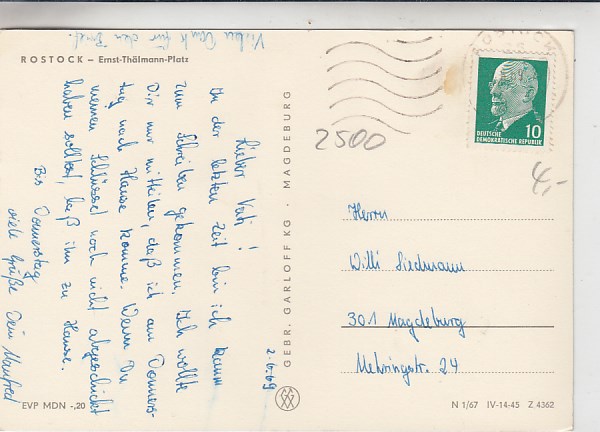 Vielen Dank für den Brief.
ROSTOCK – Ernst-Thälmann-Platz
2.6.69
Lieber Vati!
In der letzten Zeit bin ich kaum
zum Schreiben gekommen. Ich wollte
Dir nur mitteilen, daß ich am Donners-
tag nach Hause komme. Wenn Du
meinen Schlüssel noch nicht abgeschickt
haben solltest, laß ihn zu Hause.
Bis Donnerstag
viele Grüße Dein Manfred
EVP MDN -,20
GEBR. GARLOFF KG · MAGDEBURG
2500
10
DEUTSCHE
DEMOKRATISCHE REPUBLIK
4,-
Herrn
Willi Siedmann
301 Magdeburg
Mehringstr. 24
N 1/67 IV-14-45 Z 4362